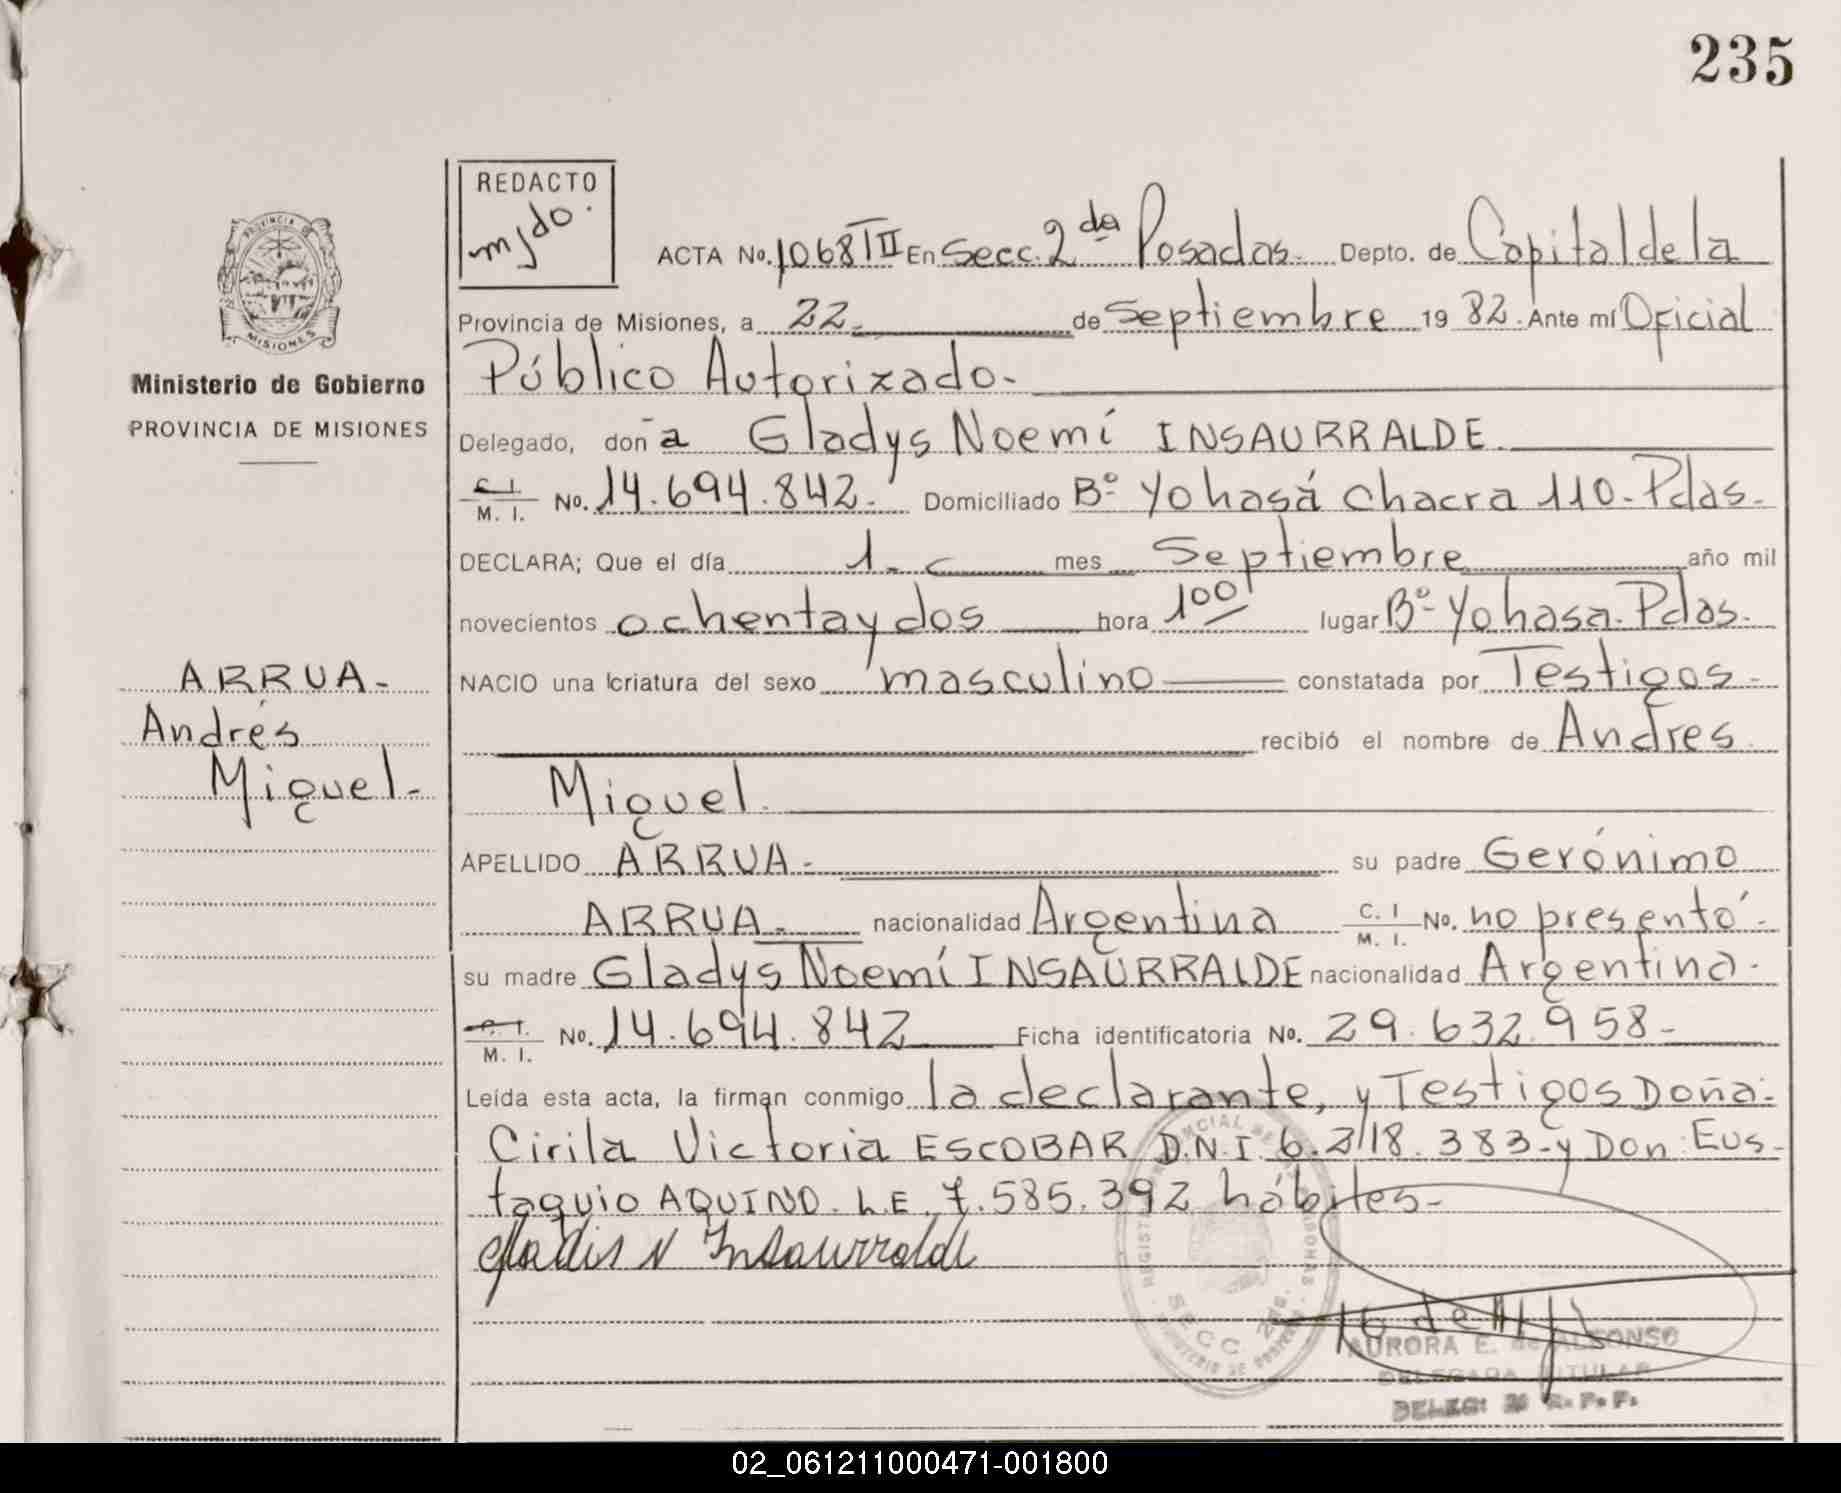 235
REDACTO
mjdo.
PROVINCIA DE
MISIONES
Ministerio de Gobierno
PROVINCIA DE MISIONES
ARRUA-
Andrés
Miguel-
ACTA No. 1068 TII En Secc. 2da Posadas. Depto. de Capital de la
Provincia de Misiones, a 22. de Septiembre 1982. Ante mí Oficial
Público Autorizado-
Delegado, doña Gladys Noemí INSAURRALDE.
C. I. M. I. No. 14.694.842.- Domiciliado Bº Yohasá Chacra 110-Pdas-
DECLARA; Que el día 1.- mes Septiembre año mil
novecientos ochenta y dos hora 100 lugar Bº Yohasa. Pdas.
NACIO una criatura del sexo masculino constatada por Testigos-
recibió el nombre de Andres
Miguel.
APELLIDO ARRUA- su padre Gerónimo
ARRUA- nacionalidad Argentina C. I M. I. No. no presentó-
su madre Gladys Noemí INSAURRALDE nacionalidad Argentina-
C. I. M. I. No. 14.694.842 Ficha identificatoria No. 29.632.958-
Leída esta acta, la firman conmigo la declarante, y Testigos Doña:
Cirila Victoria ESCOBAR D.N.I 6.218.383-y Don: Eus-
taquio AQUINO. L.E. 7.585.392 hábiles-
Gladis N Insaurralde
SECC 2da.
AURORA E. de ALFONSO
DELEGADA TITULAR
DELEG: R. P. P.
02_061211000471-001800